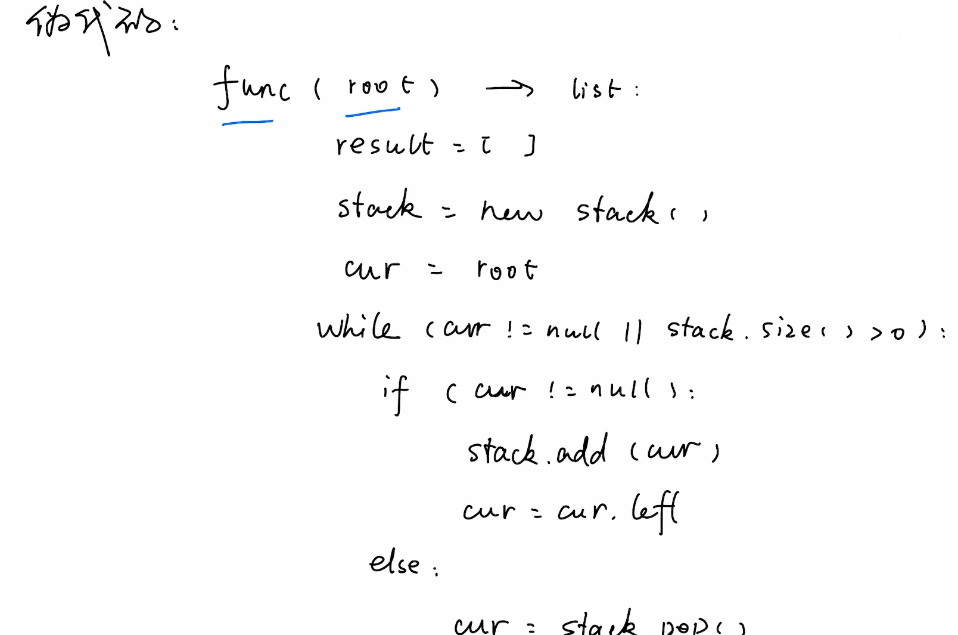 伪代码:
func(root) → list:
result = [ ]
stack = new stack()
cur = root
while (cur != null || stack.size() > 0):
if (cur != null):
stack.add(cur)
cur = cur.left
else:
cur = stack.pop()